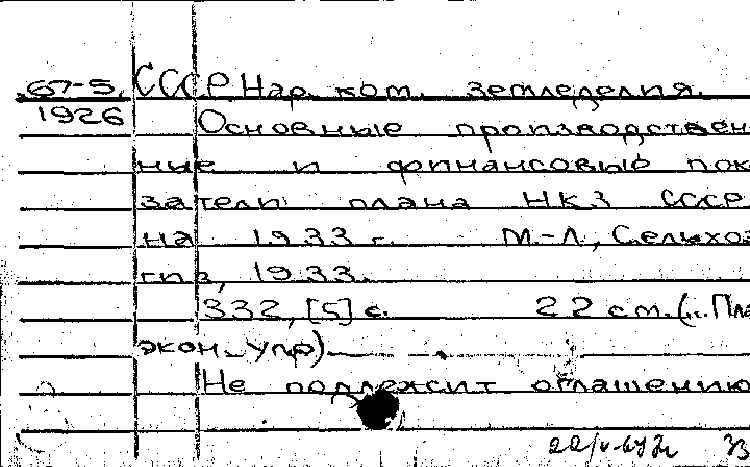 67-5. СССР Нар. ком. земледелия.
1926 Основные производствен
ные и финансовые пок
затели плана НКЗ СССР
на 1933 г. М.-Л., Сельхоз
гиз, 1933.
332, [5] с. 22 см. (.. Пла
экон. упр)
Не подлежит оглашению